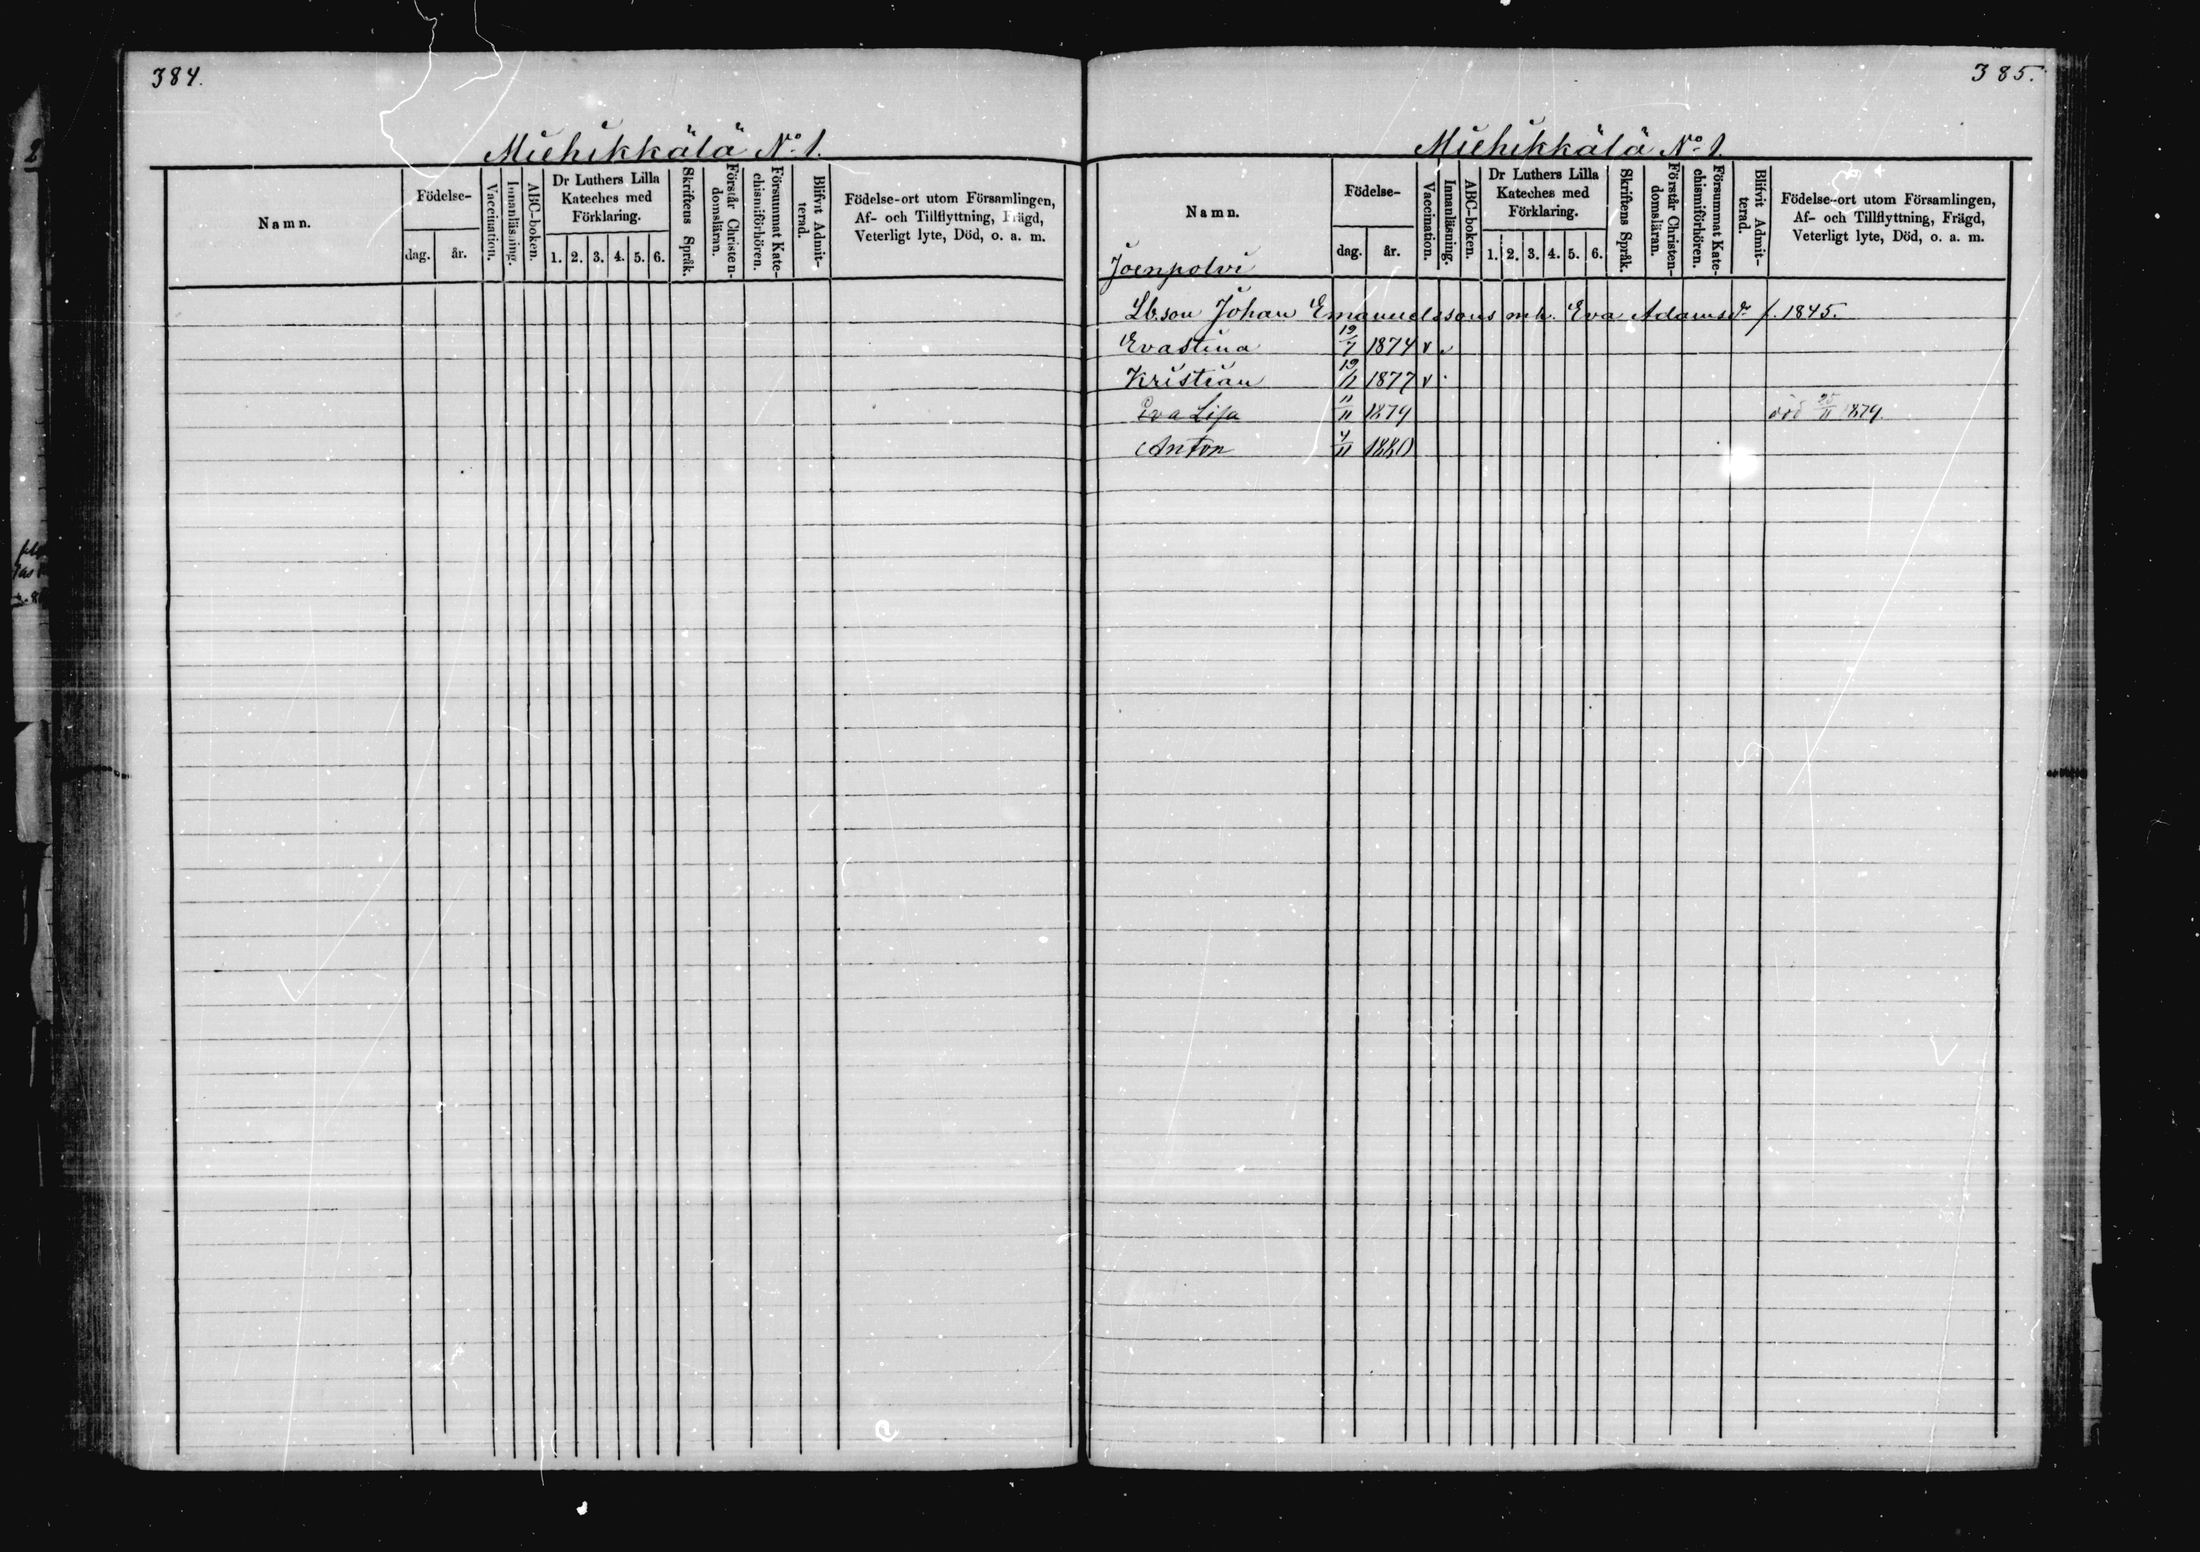 384.
Miehikkälä No 1.
Namn.
Födelse-
dag. år.
Vaccination.
Innanläsning.
ABC-boken.
Dr Luthers Lilla
Kateches med
Förklaring.
1. 2. 3. 4. 5. 6.
Skriftens Språk.
Förstår Christen-
domsläran.
Försummat Kate-
chismiförhören.
Blifvit Admit-
terad.
Födelse-ort utom Församlingen,
Af- och Tillflyttning, Frägd,
Veterligt lyte, Död, o. a. m.
385.
Miehikkälä No 1.
Namn.
Födelse-
dag. år.
Vaccination.
Innanläsning.
ABC-boken.
Dr Luthers Lilla
Kateches med
Förklaring.
1. 2. 3. 4. 5. 6.
Skriftens Språk.
Förstår Christen-
domsläran.
Försummat Kate-
chismiförhören.
Blifvit Admit-
terad.
Födelse-ort utom Församlingen,
Af- och Tillflyttning, Frägd,
Veterligt lyte, Död, o. a. m.
Joenpolvi
Lb.son Johan Emanuelssons m h. Eva Adamsdr f. 1845.
Evastina 19/7 1874 v
Kristian 1877 v
Eva Lisa 11/11 1879 död 25/11 1879.
Anton 4/11 1880